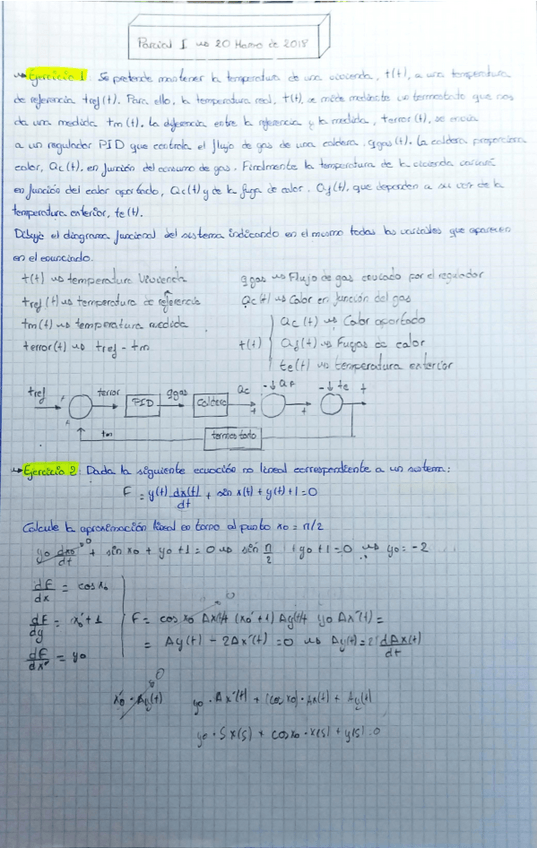 Parcial I → 20 Marzo de 2018
→ Ejercicio 1: Se pretende mantener la temperatura de una vivienda, t(t), a una temperatura
de referencia tref(t). Para ello, la temperatura real, t(t), se mide mediante un termostato que nos
da una medida tm(t). La diferencia entre la referencia y la medida, terror(t), se envía
a un regulador PID que controla el flujo de gas de una caldera, qgas(t). La caldera proporciona
calor, Qc(t), en función del consumo de gas. Finalmente la temperatura de la vivienda variará
en función del calor aportado, Qc(t) y de la fuga de calor, Qf(t), que dependen a su vez de la
temperatura exterior, te(t).
Dibuje el diagrama funcional del sistema indicando en el mismo todas las variables que aparecen
en el enunciado.
t(t) → temperatura vivienda
tref(t) → temperatura de referencia
tm(t) → temperatura medida
terror(t) → tref - tm
qgas → Flujo de gas enviado por el regulador
Qc(t) → Calor en función del gas
t(t) { Qc(t) → Calor aportado
Qf(t) → Fugas de calor
te(t) → temperatura exterior
tref terror PID qgas Caldera Qc + - Qf + - te t
tm termostato
→ Ejercicio 2: Dada la siguiente ecuación no lineal correspondiente a un sistema:
F = y(t) dx(t)/dt + sin x(t) + y(t) + 1 = 0
Calcule la aproximación lineal en torno al punto x0 = π/2
y0 dx0/dt →0 + sin x0 + y0 + 1 = 0 → sin π/2 + y0 + 1 = 0 → y0 = -2
dF/dx = cos x0
dF/dy = x0' + 1
dF/dx' = y0
F = cos x0 Δx(t) + (x0' + 1) Δy(t) + y0 Δx'(t) =
= Δy(t) - 2Δx'(t) = 0 → Δy(t) = 2 dΔx(t)/dt
x0' · Δy(t) →0
y0 · Δx'(t) + (cos x0) · Δx(t) + Δy(t)
y0 · S x(s) + cos x0 · x(s) + y(s) = 0